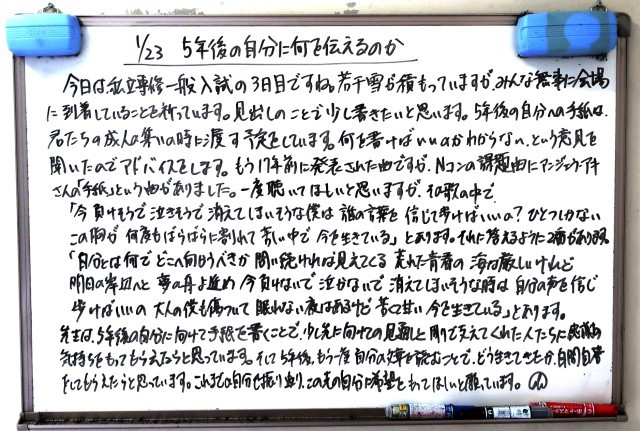 1/23 5年後の自分に何を伝えるのか
今日は私立専修一般入試の3日目ですね。若干雪が積もっていますが、みんな無事に会場
に到着していることを祈っています。見出しのことで少し書きたいと思います。5年後の自分への手紙は、
君たちの成人の集いの時に渡す予定をしています。何を書けばいいのかわからない、という意見を
聞いたのでアドバイスをします。もう17年前に発表された曲ですが、Nコンの課題曲にアンジェラ・アキ
さんの「手紙」という曲がありました。一度聴いてほしいと思いますが、その歌の中で、
「今負けそうで泣きそうで消えてしまいそうな僕は 誰の言葉を信じて歩けばいいの? ひとつしかない
この胸が何度もばらばらに割れて 苦しい中で今を生きている」とあります。それに答えるように2番があります。
「自分とは何でどこへ向かうべきか 問い続ければ見えてくる 荒れた青春の海は厳しいけれど
明日の岸辺へと 夢の舟よ進め 今負けないで泣かないで消えてしまいそうな時は 自分の声を信じ
歩けばいいの 大人の僕も傷ついて眠れない夜はあるけど 苦くて甘い今を生きている」とあります。
先生は、5年後の自分に向けて手紙を書くことで、少し先に向けての見通しと周りで支えてくれた人たちに感謝の
気持ちをもってもらえたらと思っています。そして5年後、もう一度自分の文章を読むことで、どう生きてきたか、自問自答
をしてもらえたらと思っています。これまでの自分を振り返り、この先の自分に希望をもってほしいと願っています。